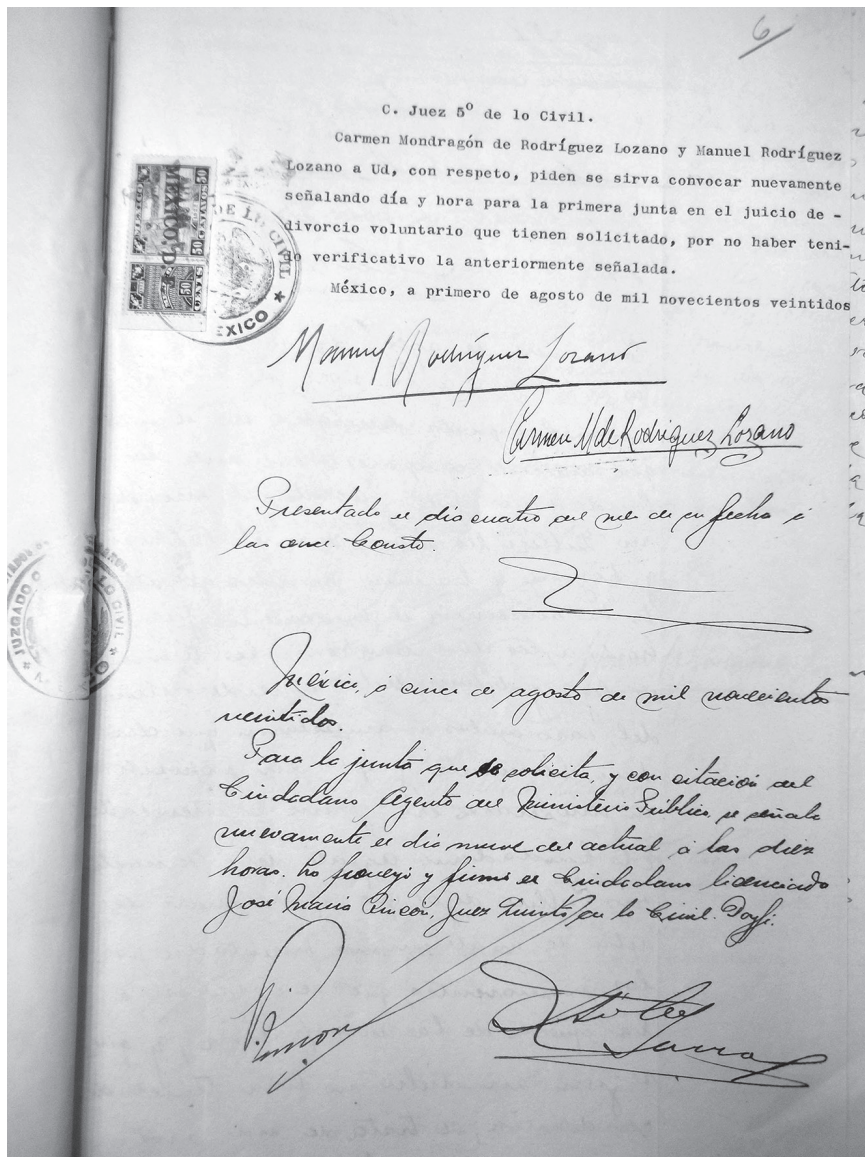 6
C. Juez 5º de lo Civil.
Carmen Mondragón de Rodríguez Lozano y Manuel Rodríguez
Lozano a Ud, con respeto, piden se sirva convocar nuevamente
señalando día y hora para la primera junta en el juicio de -
divorcio voluntario que tienen solicitado, por no haber teni-
do verificativo la anteriormente señalada.
México, a primero de agosto de mil novecientos veintidos
MEXICO, D
50 CENTAVOS 50
50
CENTS
DE LO CIVIL
EXICO ★
Manuel Rodríguez Lozano
Carmen M de Rodriguez Lozano
Presentado el dia cuatro del mes de su fecha á
las once. Consto.
JUZGADO LO CIVIL
México, á cinco de agosto de mil novecientos
veintidos.
Para la junta que se solicita, y con citación del
Ciudadano Agente del Ministerio Público, se señala
nuevamente el dia nueve del actual á las diez
horas. Lo proveyó y firmó el Ciudadano licenciado
José María Rincón, Juez Quinto de lo Civil. Doyfé.
Rincon